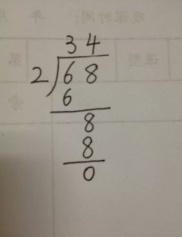 34
2)68
6
8
8
0